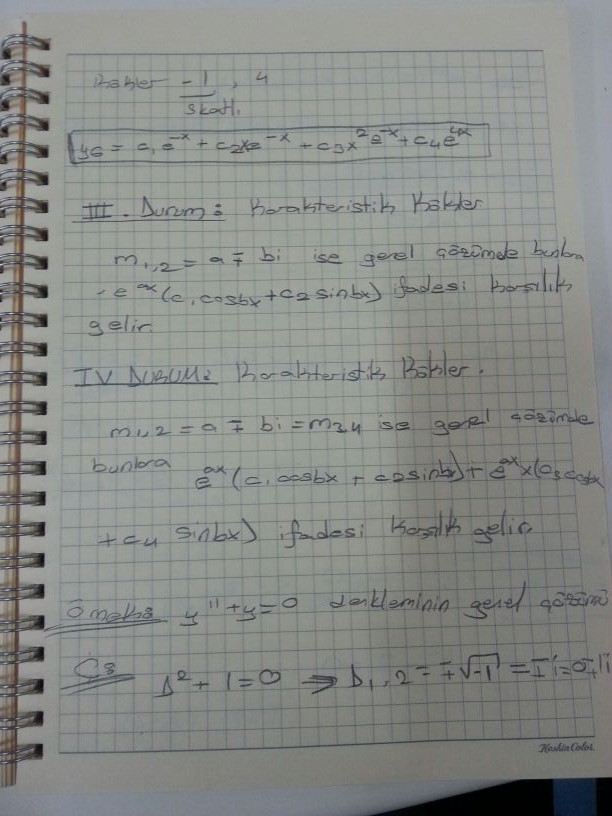 Kökler -1, 4
3katlı.
yG = c₁e^-x + c₂xe^-x + c₃x²e^-x + c₄e^4x
III. Durum: Karakteristik Kökler
m₁,₂ = a ∓ bi ise genel çözümde bunlara
e^ax (c₁cosbx + c₂sinbx) ifadesi karşılık
gelir.
IV DURUM: Karakteristik Kökler.
m₁,₂ = a ∓ bi = m₃,₄ ise genel çözümde
bunlara e^ax (c₁cosbx + c₂sinbx) + e^ax x (c₃cosbx
+ c₄ sinbx) ifadesi karşılık gelir.
Örnek: y'' + y = 0 denkleminin genel çözümü
Ç: D² + 1 = 0 ⇒ D₁,₂ = ∓√-1 = ∓i = 0 ∓ 1i
KeskinColor